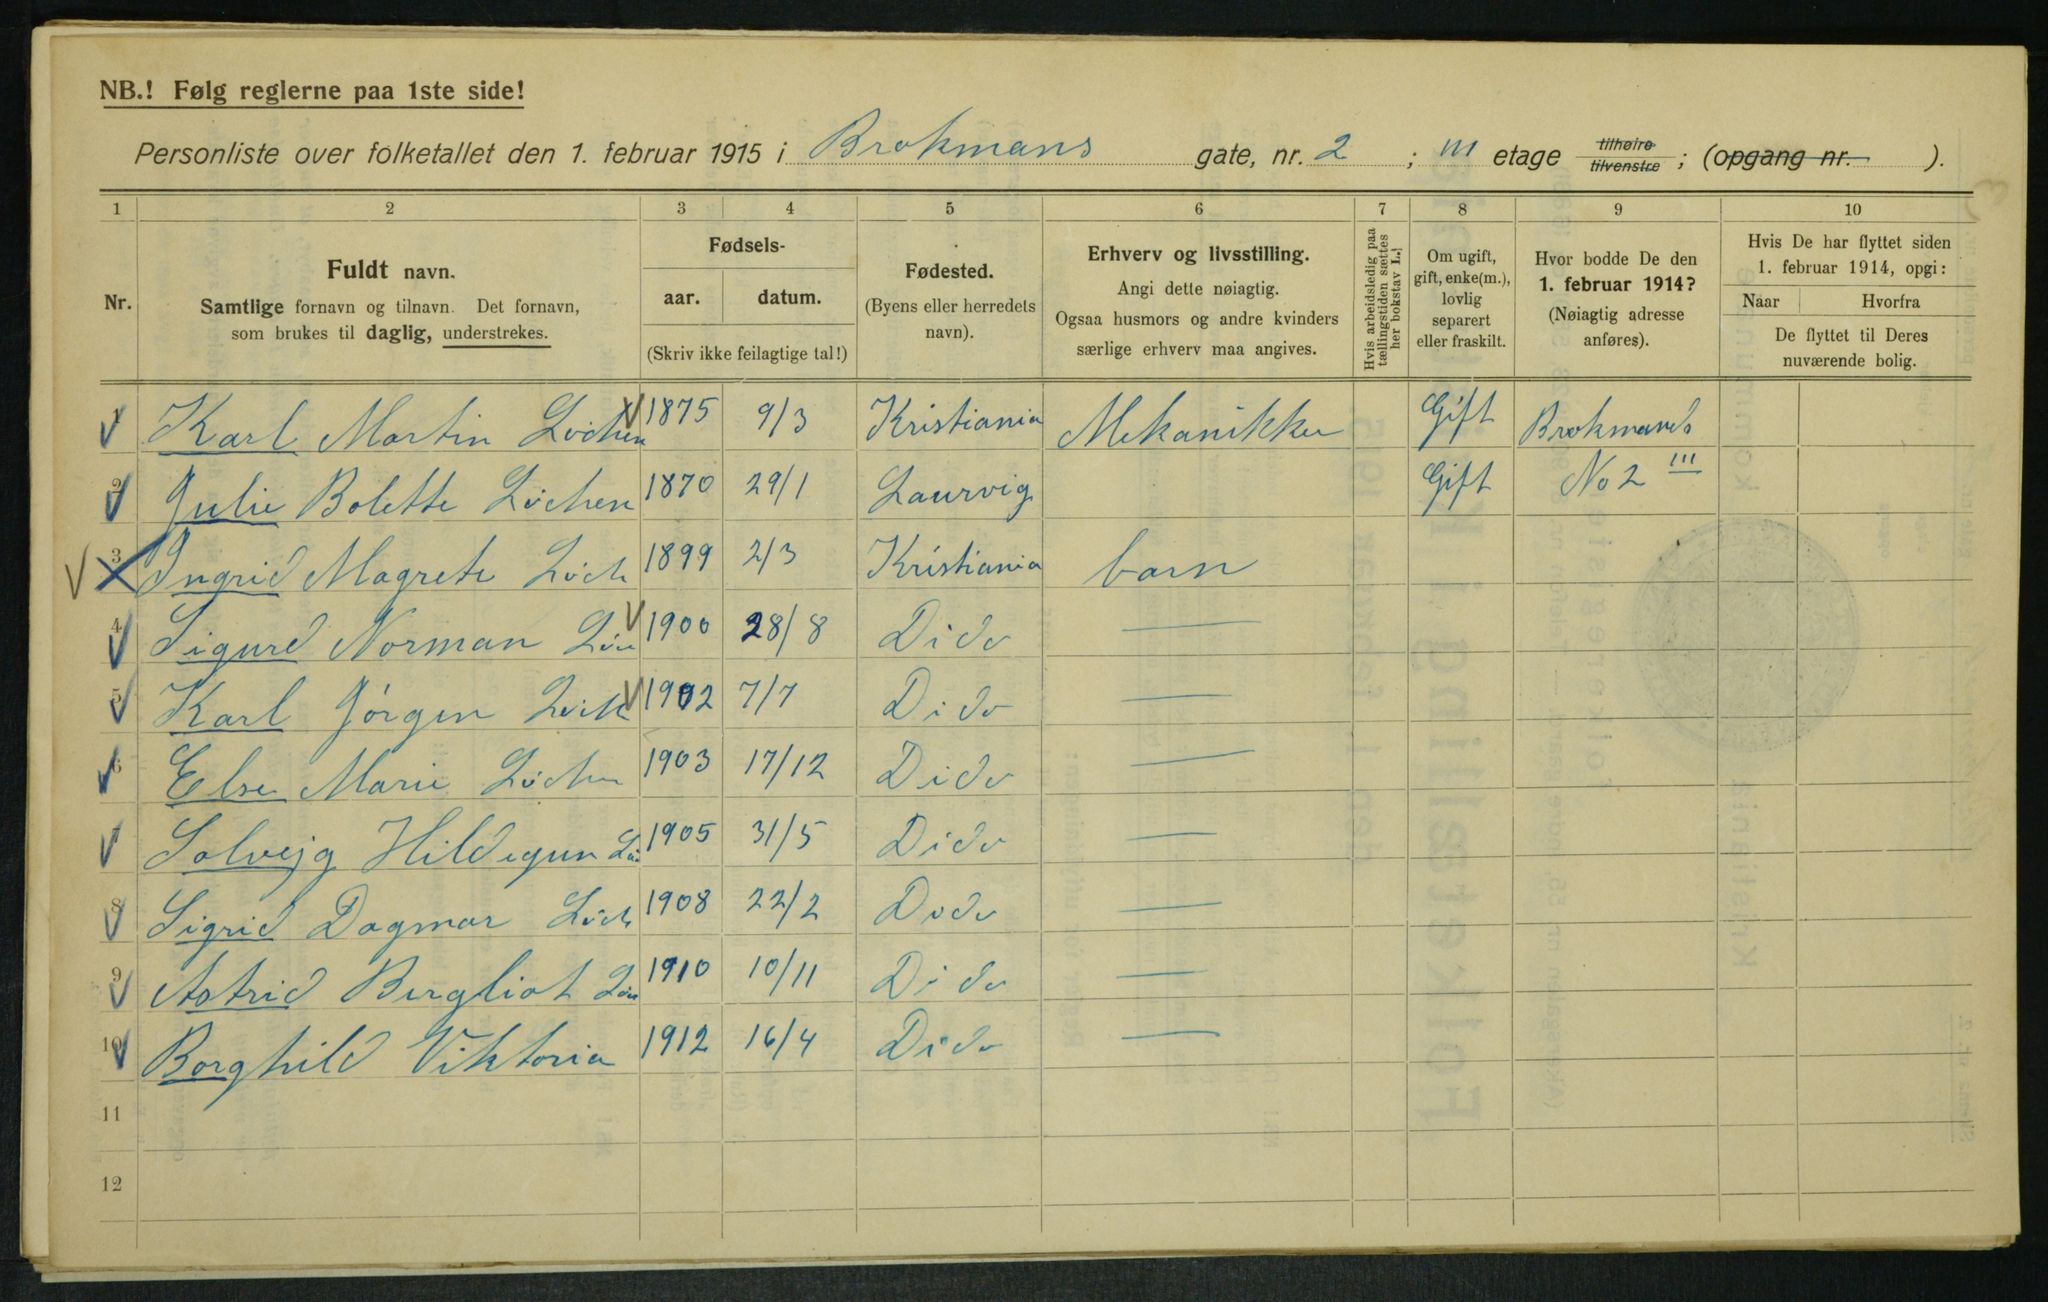 NB.! Følg reglerne paa 1ste side!
Personliste over folketallet den 1. februar 1915 i Brokmans gate, nr. 2 ; III etage tilhøire tilvenstre ; (opgang nr. ).
1 2 3 4 5 6 7 8 9 10
Nr.
Fuldt navn.
Samtlige fornavn og tilnavn. Det fornavn,
som brukes til daglig, understrekes.
Fødsels-
aar. datum.
(Skriv ikke feilagtige tal!)
Fødested.
(Byens eller herredets
navn).
Erhverv og livsstilling.
Angi dette nøiagtig.
Ogsaa husmors og andre kvinders
særlige erhverv maa angives.
Hvis arbeidsledig paa
tællingstiden sættes
her bokstav L.
Om ugift,
gift, enke(m.),
lovlig
separert
eller fraskilt.
Hvor bodde De den
1. februar 1914?
(Nøiagtig adresse
anføres).
Hvis De har flyttet siden
1. februar 1914, opgi:
Naar Hvorfra
De flyttet til Deres
nuværende bolig.
1 Karl Martin Löchen 1875 9/3 Kristiania Mekanikker Gift Brokmands
2 Julie Bolette Löchen 1870 29/1 Laurvig Gift No 2 III
3 Ingrid Magrete Löch 1899 2/3 Kristiania barn
4 Sigurd Norman 1900 28/8 Dido —
5 Karl Jörgen 1902 7/7 Dido —
6 Else Marie Löchen 1903 17/12 Dido —
7 Solvejg Hildegun 1905 31/5 Dido —
8 Sigrid Dagmar Löch 1908 22/2 Dido —
9 Astrid Bergliot 1910 10/11 Dido —
10 Borghild Viktoria 1912 16/4 Dido —
11
12